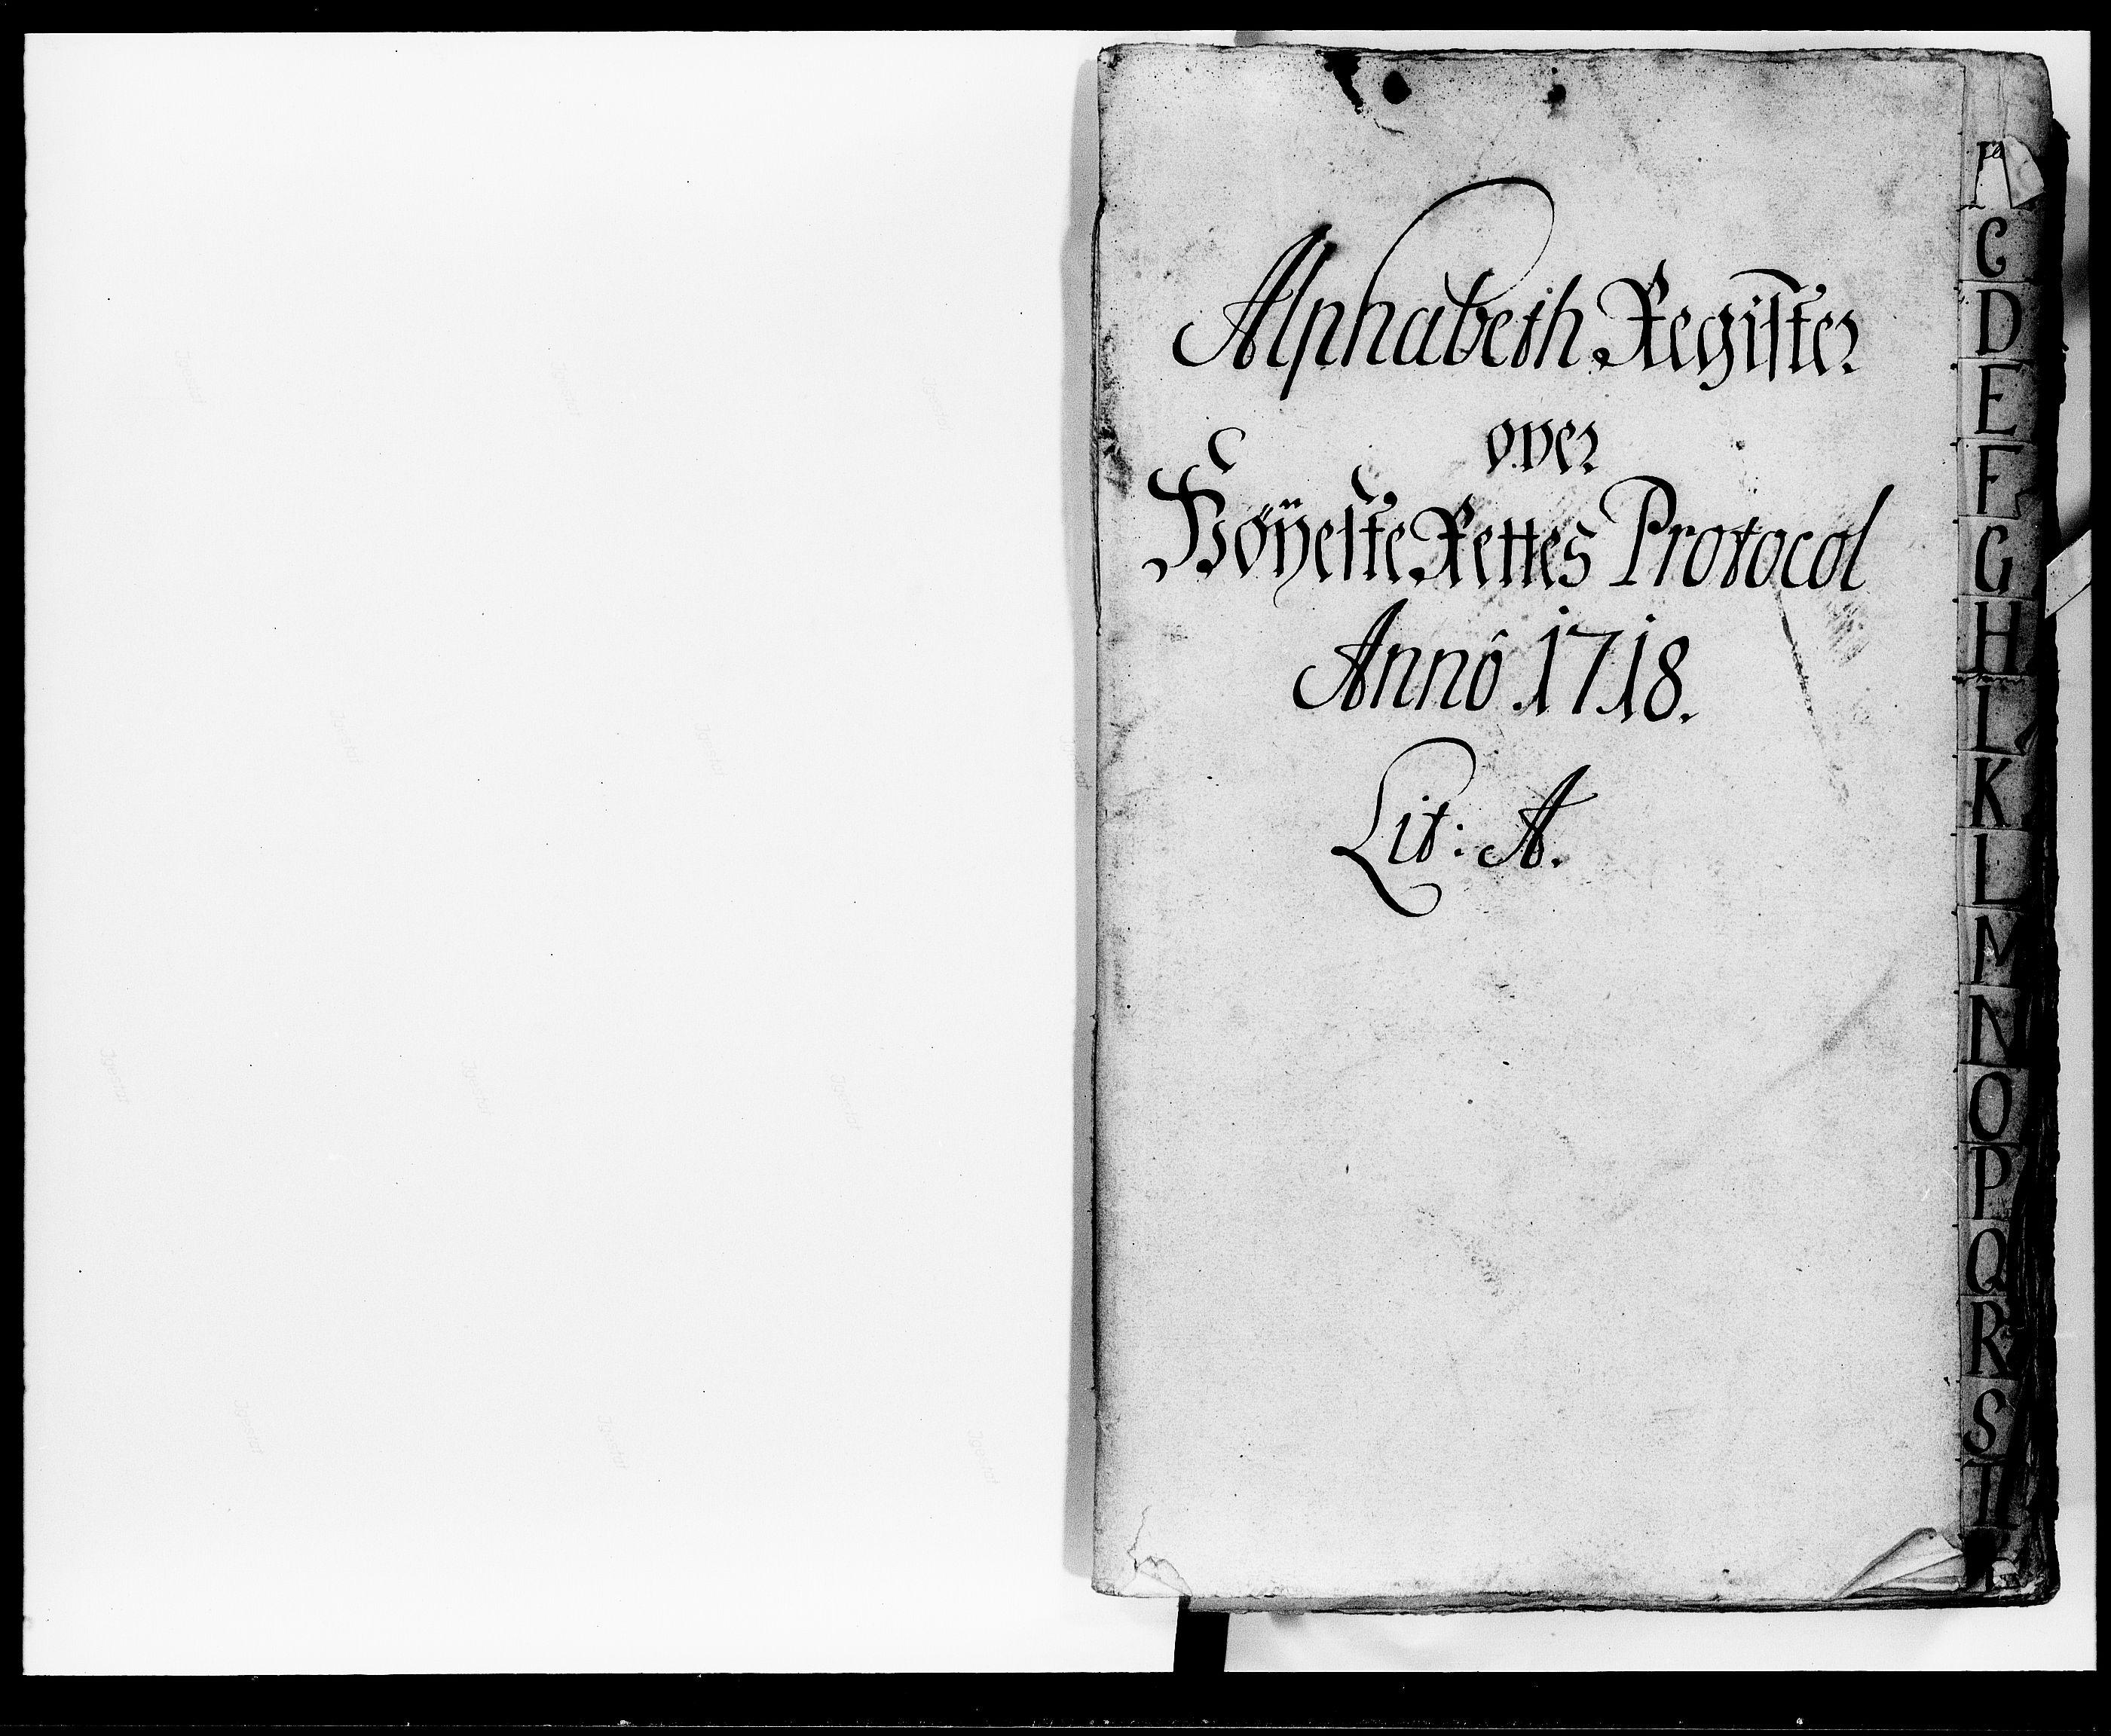 Alphabeth Register
over
Høÿeste Rettes Protocol
Annô 1718.
Lit: A.
C
D
E
F
G
H
I
K
L
M
N
O
P
Q
R
S
T